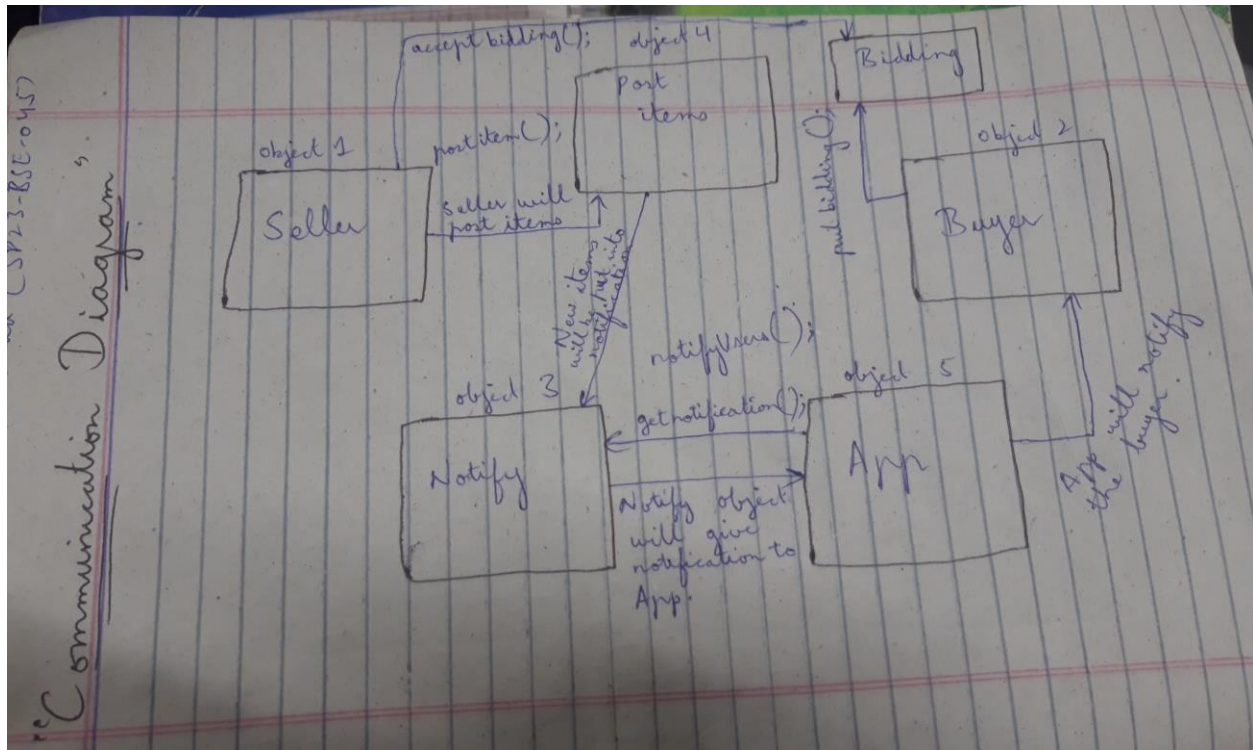 (SP23-BSE-045)
"Communication Diagram".
accept bidding();
object 4
Post
items
Bidding
object 1
Seller
postitem();
Seller will
post items
put bidding();
object 2
Buyer
New items
will be put into
notification
notifyUsers();
object 3
Notify
getnotification();
object 5
App
Notify object
will give
notification to
App.
App will notify
the buyer.